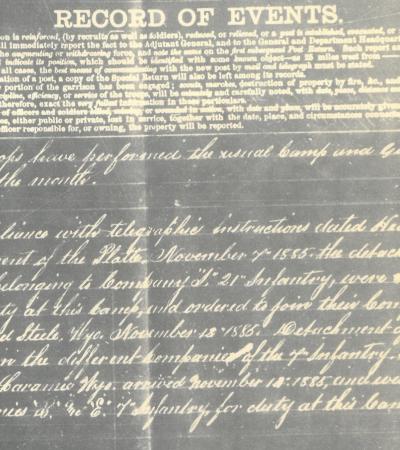 RECORD OF EVENTS.
on is reinforced, (by recruits as well as soldiers), reduced, or relieved, or a post is established,
ll immediately report the fact to the Adjutant General, and to the General and Department Head
augmenting or withdrawing force, and note the same on the first subsequent Post Return. Each report
indicate its position, which should be identified with some known object—as 25 miles west from
all cases, the best means of communicating with the new post by mail and telegraph must be stated.
ation of a post, a copy of the Special Return will also be left among its records.
portion of the garrison has been engaged; scouts, marches, destruction of property by fire, &c.,
pline, efficiency, or service of the troops, will be concisely and carefully noted, with date, place,
therefore, exact the very fullest information in these particulars.
of officers and soldiers with date and place, will be accurately
es, either public or private, lost in service, together with the date, place, and circumstances
officer responsible for, or owning, the property will be reported.
ops have performed the usual Camp and
the month.
liance with telegraphic instructions dated
ent of the Platte, November 7" 1885. the detach
belonging to Company 21" Infantry, were
ty at this camp, and ordered to join their Com
d Steele, Wyo. November 13 1885. Detachment
the different Companies of the 7" Infantry.
Laramie Wyo. arrived November 1885, and
E. 7" Infantry, for duty at this Cam